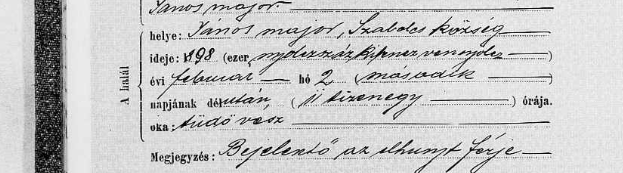 János major.
A halál
helye: János major, Szabolcs község
ideje: 1898 (ezer nyolczszázkilenczvennyolcz)
évi február hó 2 (második)
napjának délután, (11 tizenegy) órája.
oka: tüdővész
Megjegyzés: Bejelentő az elhunyt férje